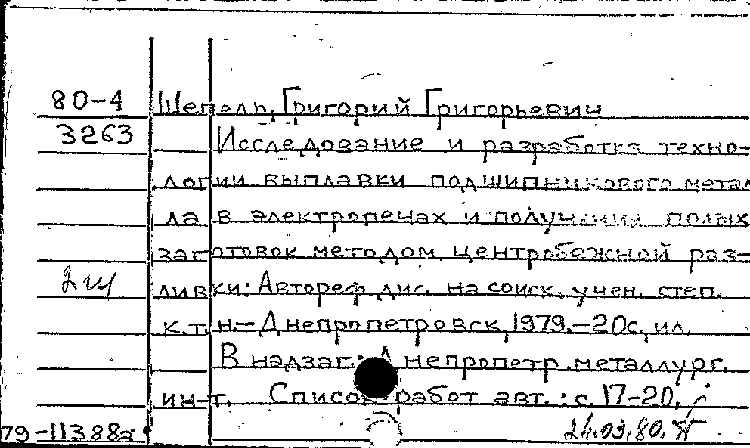 80-4 Шепель, Григорий Григорьевич
3263 Исследование и разработка техно-
логии выплавки подшипникового метал
ла в электропечах и получения полых
заготовок методом центробежной раз-
2 ш ливки: Автореф. дис. на соиск. учен. степ.
к.т.н.-Днепропетровск, 1979.-20с, ил.
В надзаг.: Днепропетр. металлург.
ин-т. Список работ авт.: с. 17-20.
79-11388а 24.03.80.